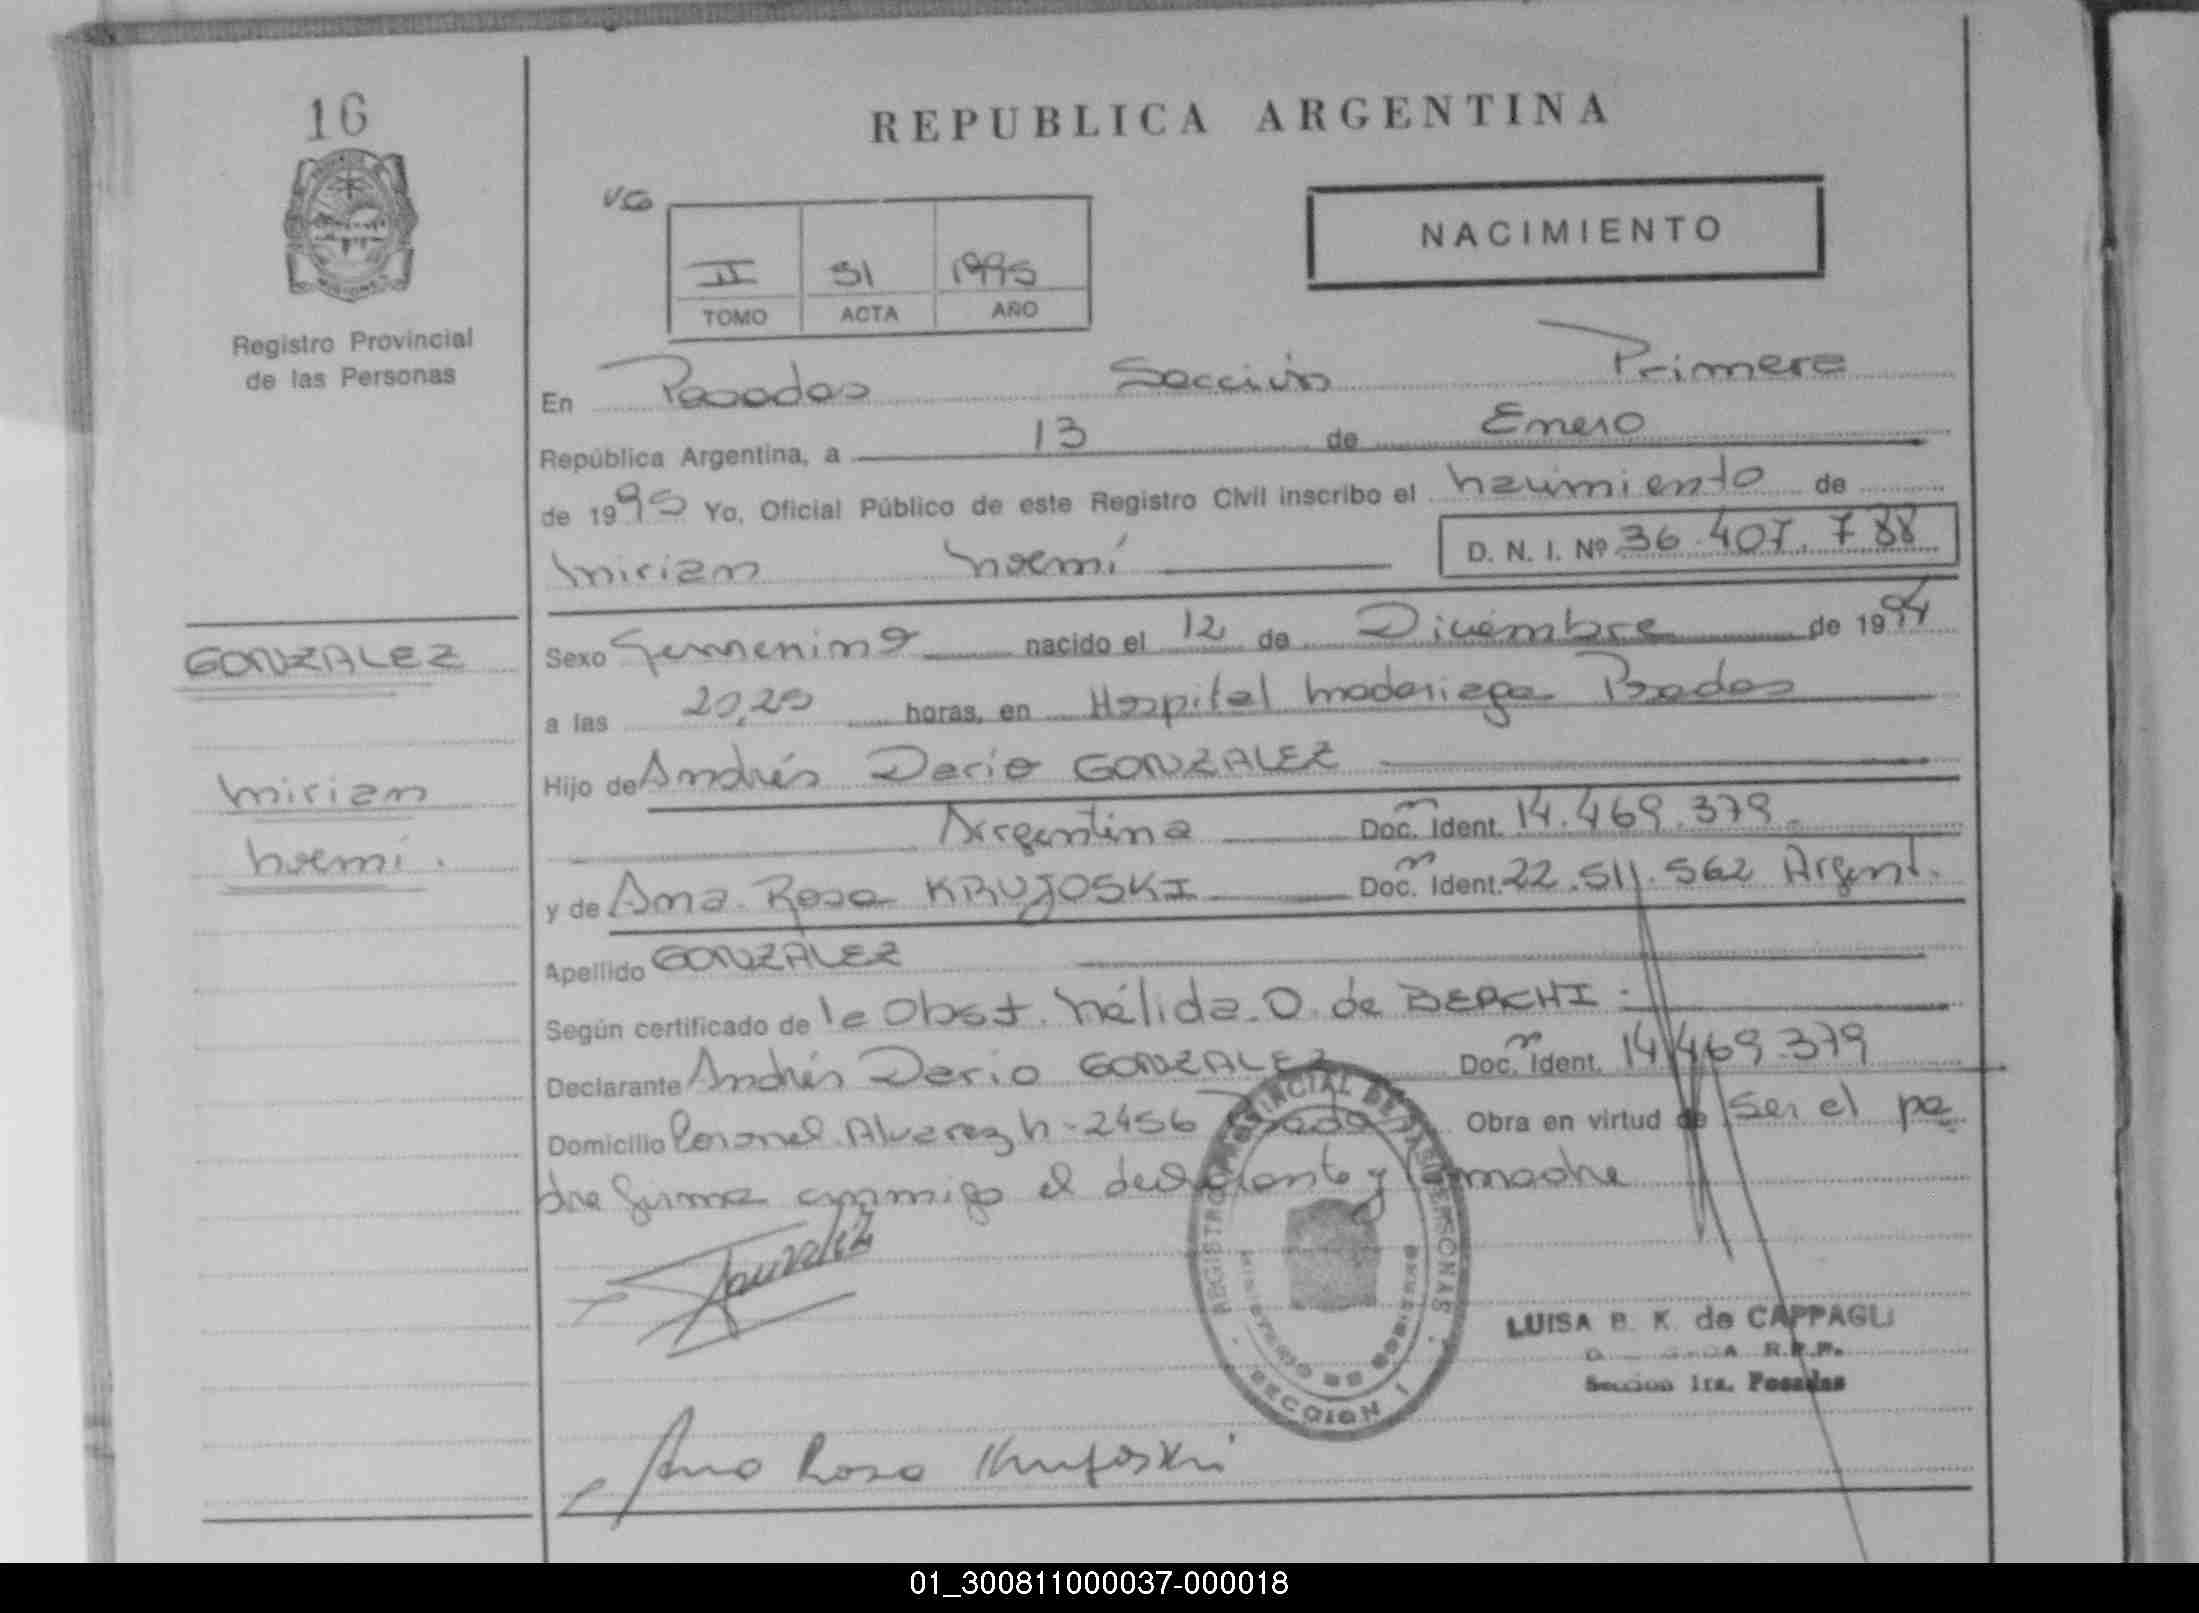 16
REPUBLICA ARGENTINA
NACIMIENTO
II 31 1995
TOMO ACTA AÑO
Registro Provincial
de las Personas
En Posadas Sección Primera
República Argentina, a 13 de Enero
de 1995 Yo, Oficial Público de este Registro Civil inscribo el nacimiento de
Miriam Noemí D. N. I. Nº 36.407.788
Sexo Femenino nacido el 12 de Diciembre de 1994
GONZALEZ
a las 20,25 horas, en Hospital Madariaga Posadas
Hijo de Andrés Dario GONZALEZ
Miriam
Noemí.
Argentina Doc. Ident. 14.469.379.
y de Ana Rosa KRUJOSKI Doc. Ident. 22.511.562 Argent.
Apellido GONZALEZ
Según certificado de la Obst. Nélida O. de BERCHI
Declarante Andrés Dario GONZALEZ Doc. Ident. 14.469.379
Domicilio Coronel Alvarez N-2456 Posadas Obra en virtud de Ser el pa
dre firma conmigo el declarante y la madre
González
REGISTRO PROVINCIAL DE LAS PERSONAS
MINISTERIO DE GOBIERNO
SECCION 1
LUISA B. K. de CAPPAGLI
R.P.P.
Seccion 1ra. Posadas
Ana Rosa Krujoski
01_300811000037-000018